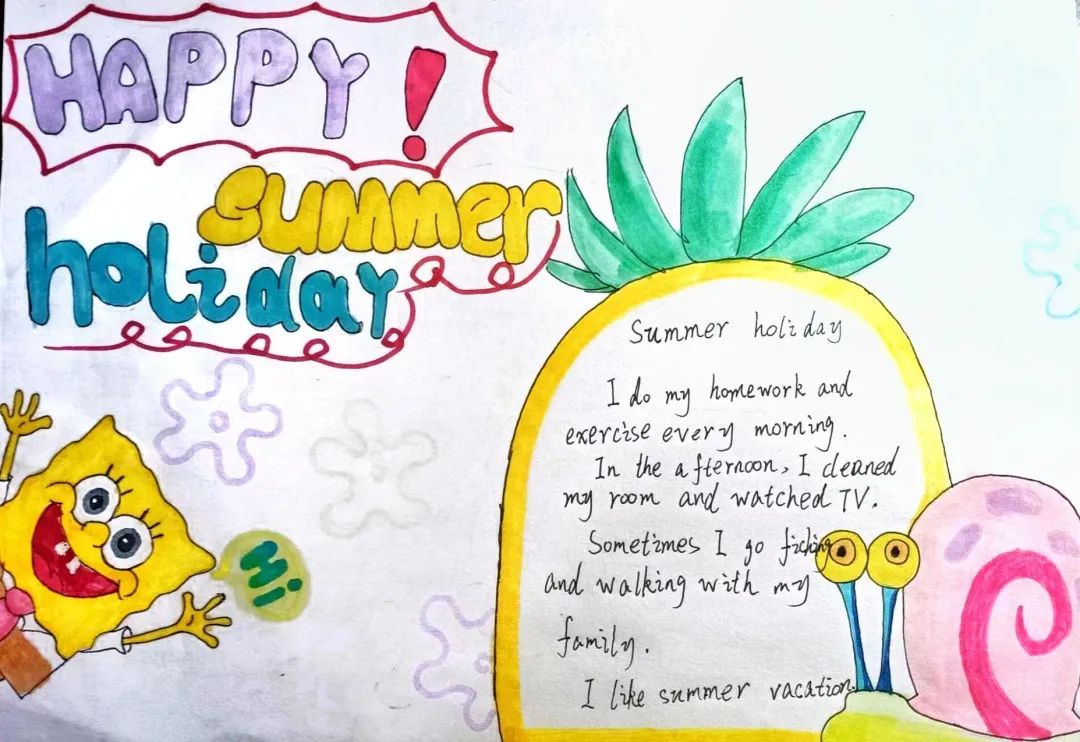 HAPPY!
summer
holiday
Hi
Summer holiday
I do my homework and
exercise every morning.
In the afternoon, I cleaned
my room and watched TV.
Sometimes I go
and walking with my
family.
I like summer vacation.